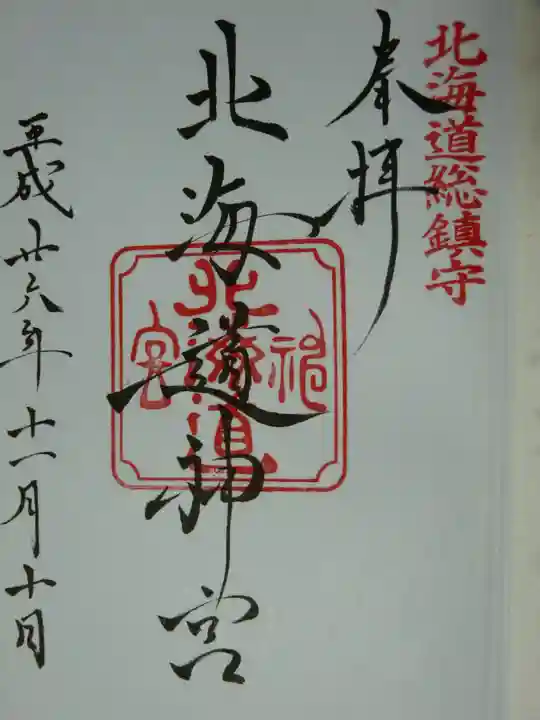 北海道総鎮守
奉拝
北海道神宮
北海道
神
宮
平成廿六年十一月十日